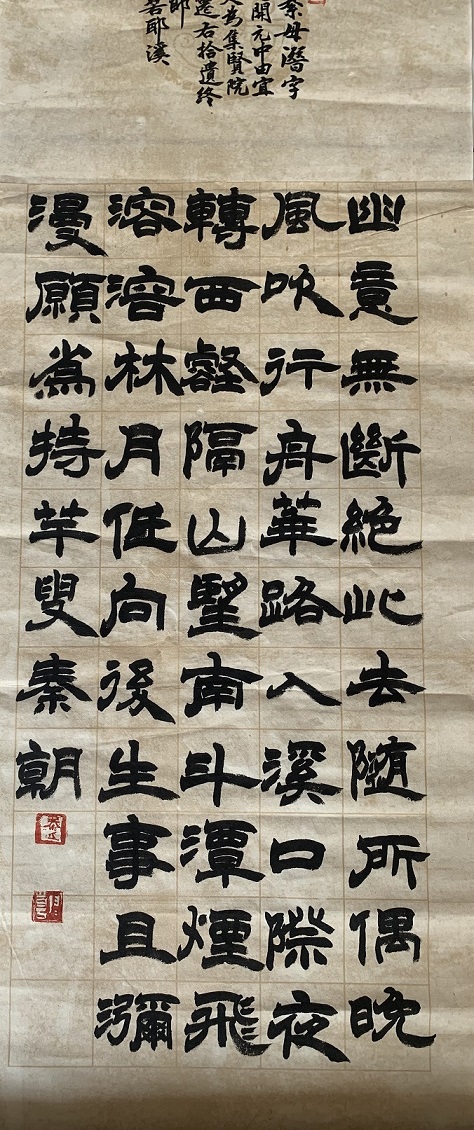 綦母潛字
開元中由宜
入為集賢院
遷右拾遺終
郎
若耶溪
幽意無斷絕此去隨所偶晚
風吹行舟華路入溪口際夜
轉西壑隔山朢南斗潭煙飛
溶溶林月低向後生事且瀰
漫願為持竿叟秦朝